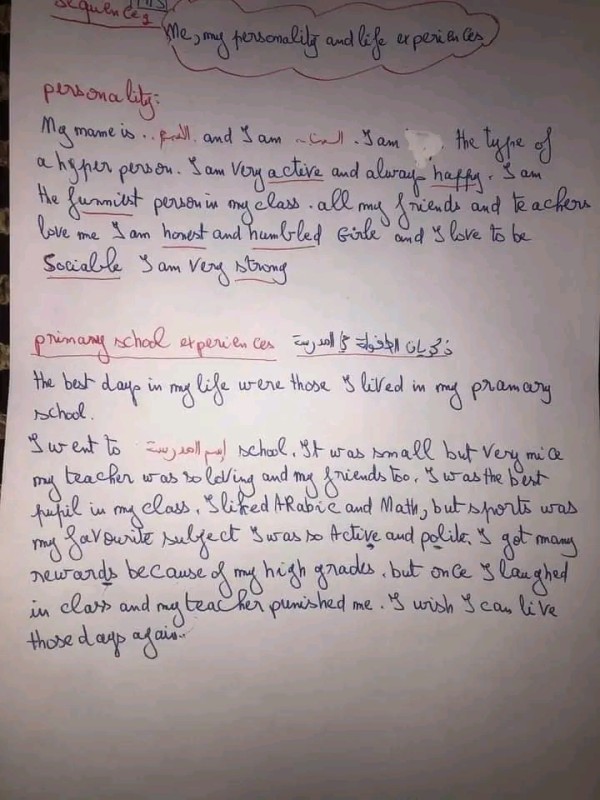 Sequence 1
MS
Me, my personality and life experiences
personality:
My name is .. الاسم. and I am .. السن . I am the type of
a hyper person. I am very active and always happy. I am
the funniest person in my class. all my friends and teachers
love me I am honest and humbled Girle and I love to be
Sociable I am very strong
primary school experiences ذكريات الطفولة في المدرسة
the best days in my life were those I lived in my pramary
school.
I went to إسم المدرسة school. It was small but very nice
my teacher was so loving and my friends too. I was the best
pupil in my class. I liked ARabic and Math, but sports was
my favourite subject I was so Active and polite. I got many
rewards because of my high grades. but once I laughed
in class and my teacher punished me. I wish I can live
those days again..